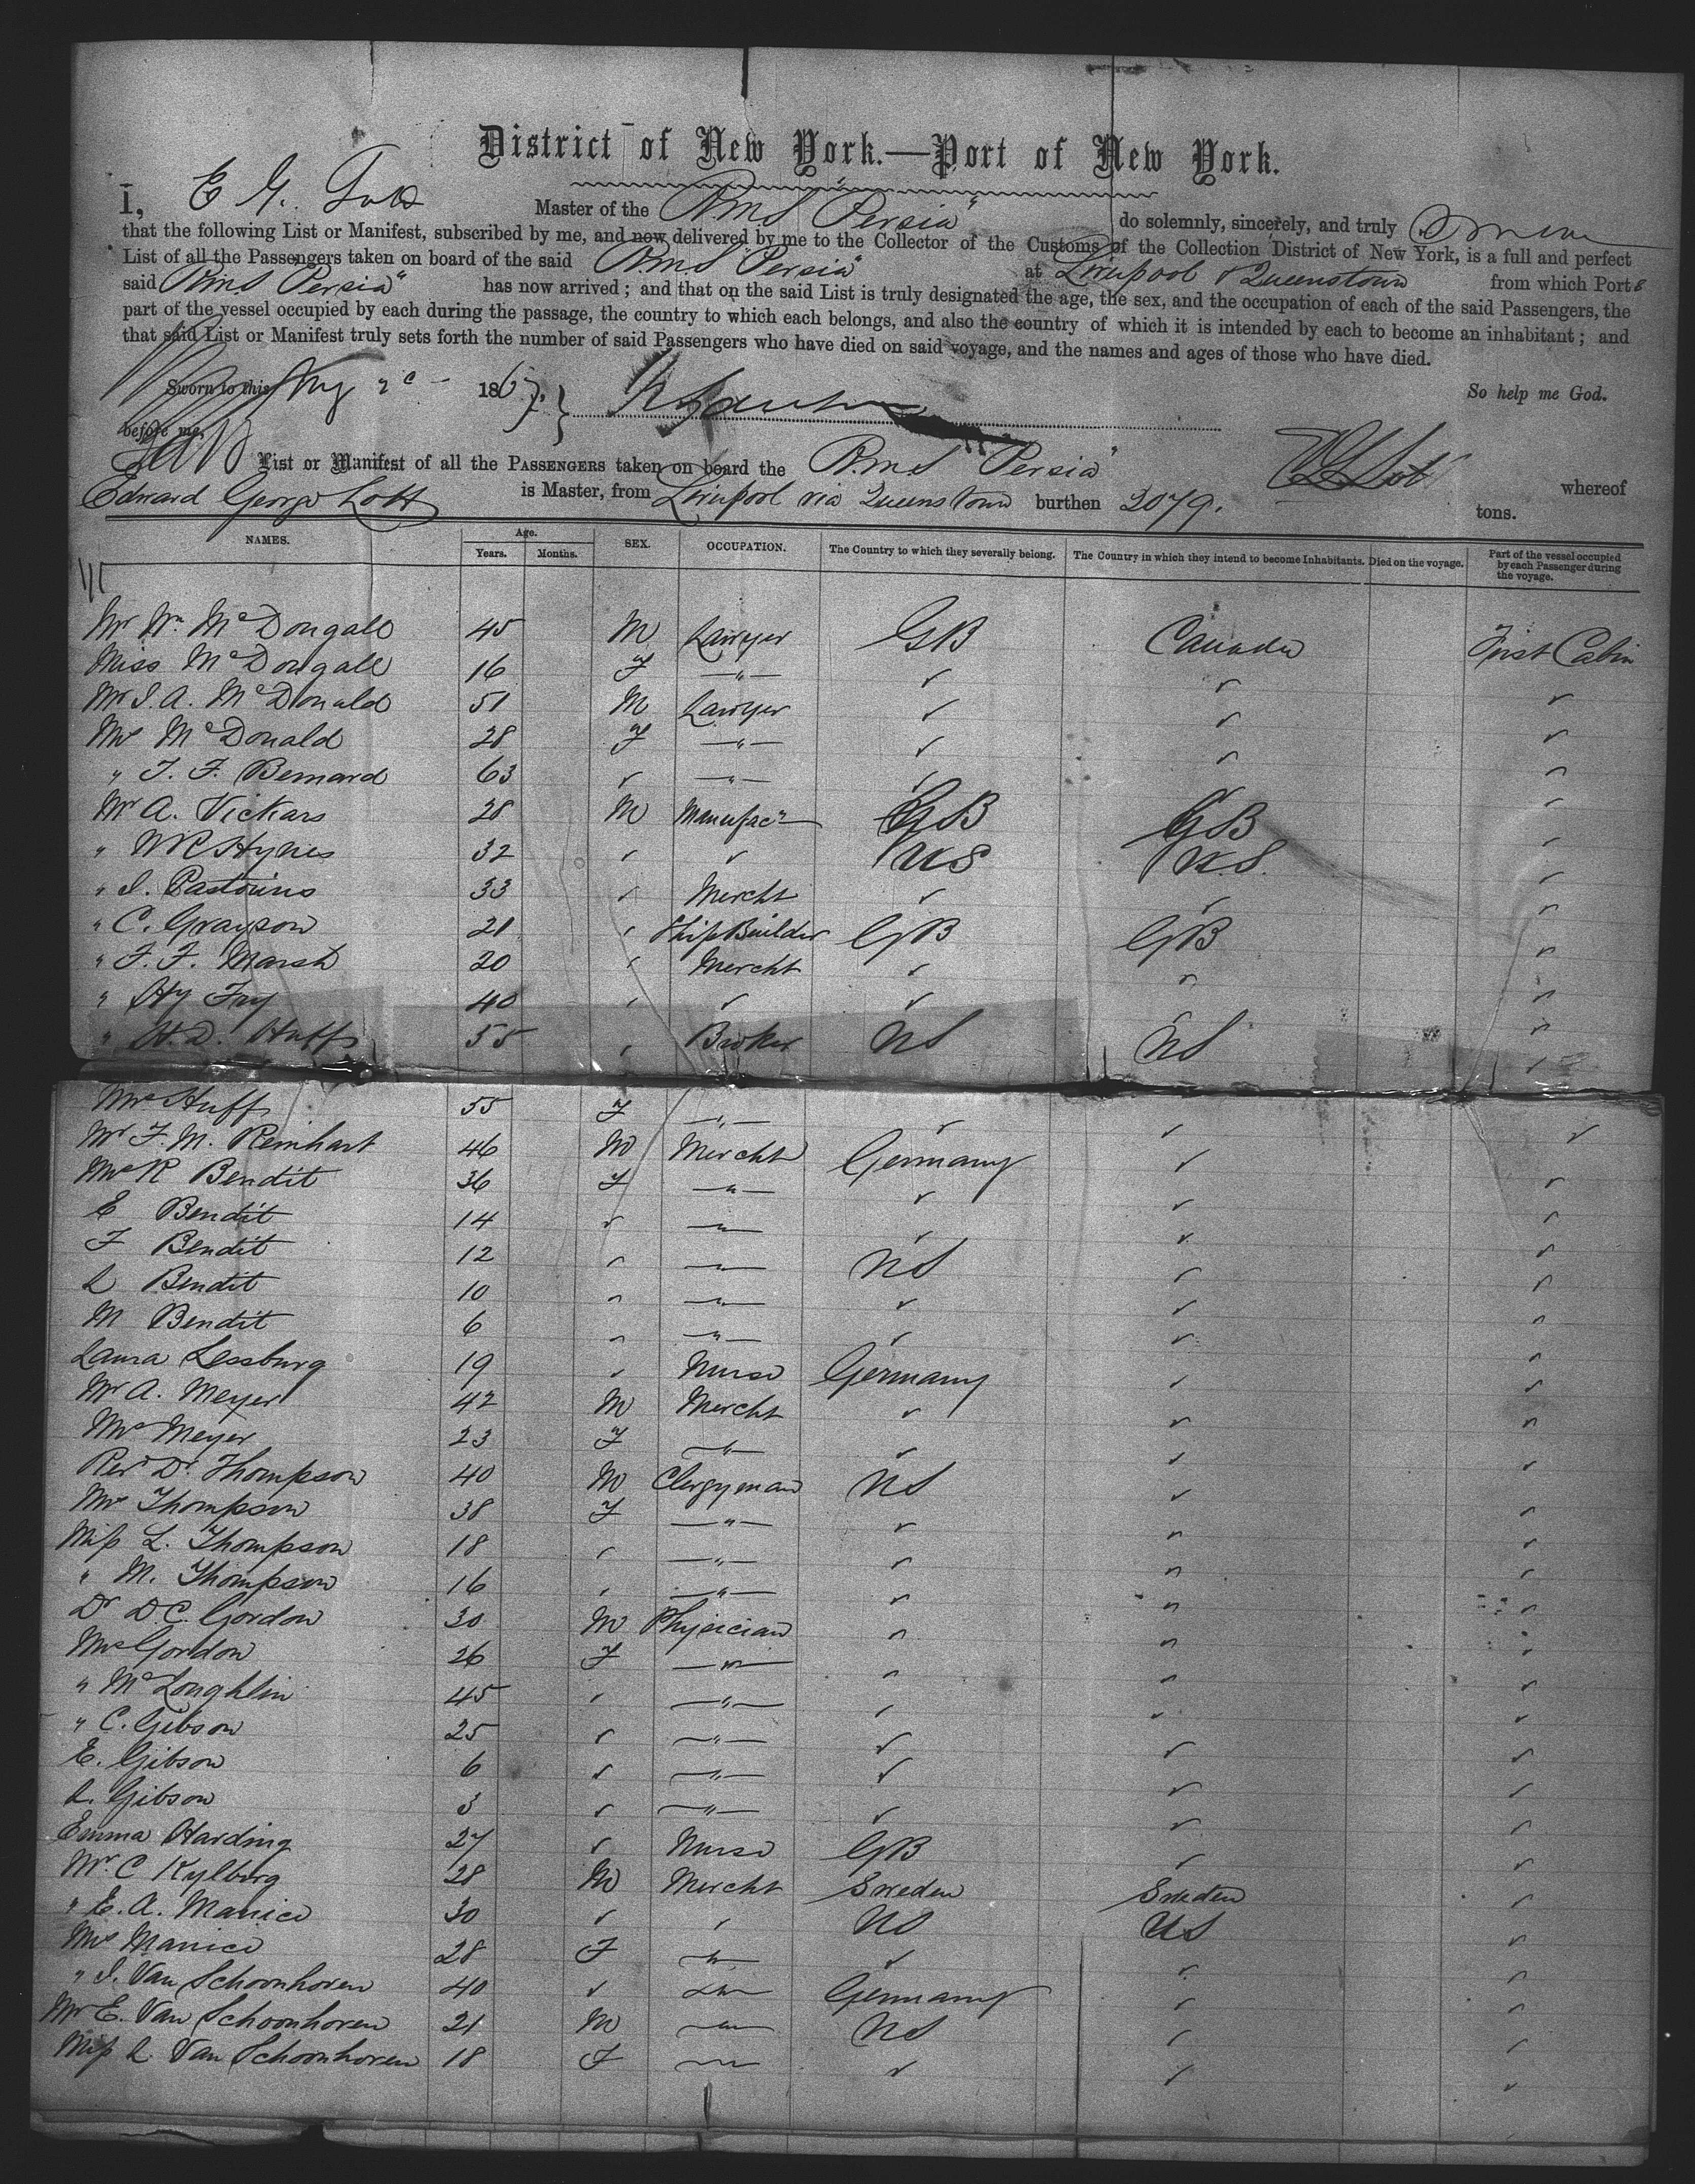 District of New York.—Port of New York.
I, E G. Lott Master of the RMS "Persia" do solemnly, sincerely, and truly
that the following List or Manifest, subscribed by me, and now delivered by me to the Collector of the Customs of the Collection District of New York, is a full and perfect
List of all the Passengers taken on board of the said RMS "Persia" at Liverpool & Queenstown from which Ports
said RMS Persia" has now arrived; and that on the said List is truly designated the age, the sex, and the occupation of each of the said Passengers, the
part of the vessel occupied by each during the passage, the country to which each belongs, and also the country of which it is intended by each to become an inhabitant; and
that said List or Manifest truly sets forth the number of said Passengers who have died on said voyage, and the names and ages of those who have died.
Sworn to this 186 So help me God.
before me,
List or Manifest of all the PASSENGERS taken on board the RMS "Persia" whereof
Edward George Lott is Master, from Liverpool via Queenstown burthen 2079. tons.
NAMES. Age. Years. Months. SEX. OCCUPATION. The Country to which they severally belong. The Country in which they intend to become Inhabitants. Died on the voyage. Part of the vessel occupied by each Passenger during the voyage.
Mr Wm McDougall 45 M Lawyer GB Canada First Cabin
Miss McDougall 16 F —"— ✓ ✓ ✓
Mr J. A. McDonald 51 M Lawyer ✓ ✓ ✓
Mrs McDonald 28 F —"— ✓ ✓ ✓
" T. F. Bernard 63 ✓ —"— ✓ ✓ ✓
Mr A. Vickars 28 M Manufacr GB GB ✓
" W R Hynes 32 ✓ ✓ US U.S. ✓
" J. Pastorius 33 ✓ Mercht ✓ ✓ ✓
" C. Grayson 21 ✓ Ship Builder GB GB ✓
" F. F. Marsh 20 ✓ Mercht ✓ ✓ ✓
" Hy Fry 40 ✓ ✓ ✓ ✓ ✓
" H. D. Huff 55 ✓ Broker US US ✓
Mrs Huff 55 F —"— ✓ ✓ ✓
Mr F. M. Reinhart 46 M Mercht Germany ✓ ✓
Mrs R Bendit 36 F —"— ✓ ✓ ✓
E Bendit 14 ✓ —"— ✓ ✓ ✓
F Bendit 12 ✓ —"— US ✓ ✓
L Bendit 10 ✓ —"— ✓ ✓ ✓
M Bendit 6 ✓ —"— ✓ ✓ ✓
Laura Lessburg 19 ✓ Nurse Germany ✓ ✓
Mr A. Meyer 42 M Mercht ✓ ✓ ✓
Mrs Meyer 23 F —"— ✓ ✓ ✓
Revd Dr Thompson 40 M Clergyman US ✓ ✓
Mrs Thompson 38 F —"— ✓ ✓ ✓
Miss L. Thompson 18 ✓ —"— ✓ ✓ ✓
" M. Thompson 16 ✓ —"— ✓ ✓ ✓
Dr D. C. Gordon 30 M Physician ✓ ✓ ✓
Mrs Gordon 26 F —"— ✓ ✓ ✓
" McLoughlin 45 ✓ —"— ✓ ✓ ✓
" C. Gibson 25 ✓ —"— ✓ ✓ ✓
E. Gibson 6 ✓ —"— ✓ ✓ ✓
L. Gibson 3 ✓ —"— ✓ ✓ ✓
Emma Harding 27 ✓ Nurse GB ✓ ✓
Mr. C Kylberg 28 M Mercht Sweden Sweden ✓
" E. A. Manice 30 ✓ ✓ US US ✓
Mrs Manice 28 F —"— ✓ ✓ ✓
" J. Van Schoonhoven 40 ✓ —"— Germany ✓ ✓
Mr E. Van Schoonhoven 21 M —"— US ✓ ✓
Miss L Van Schoonhoven 18 F —"— ✓ ✓ ✓